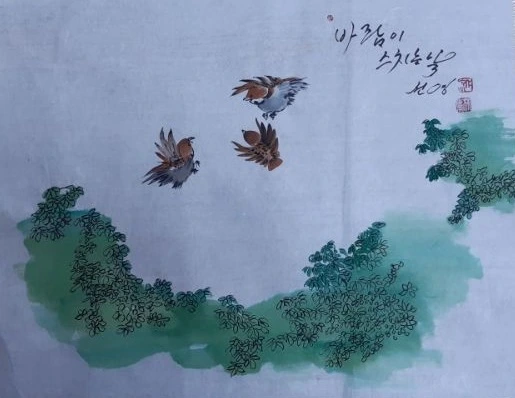 바람이
스치는 날
선영